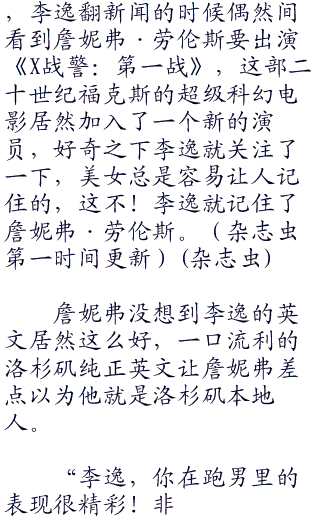 ，李逸翻新闻的时候偶然间
看到詹妮弗·劳伦斯要出演
《X战警：第一战》，这部二
十世纪福克斯的超级科幻电
影居然加入了一个新的演
员，好奇之下李逸就关注了
一下，美女总是容易让人记
住的，这不！李逸就记住了
詹妮弗·劳伦斯。（杂志虫
第一时间更新）(杂志虫)
詹妮弗没想到李逸的英
文居然这么好，一口流利的
洛杉矶纯正英文让詹妮弗差
点以为他就是洛杉矶本地
人。
“李逸，你在跑男里的
表现很精彩！非